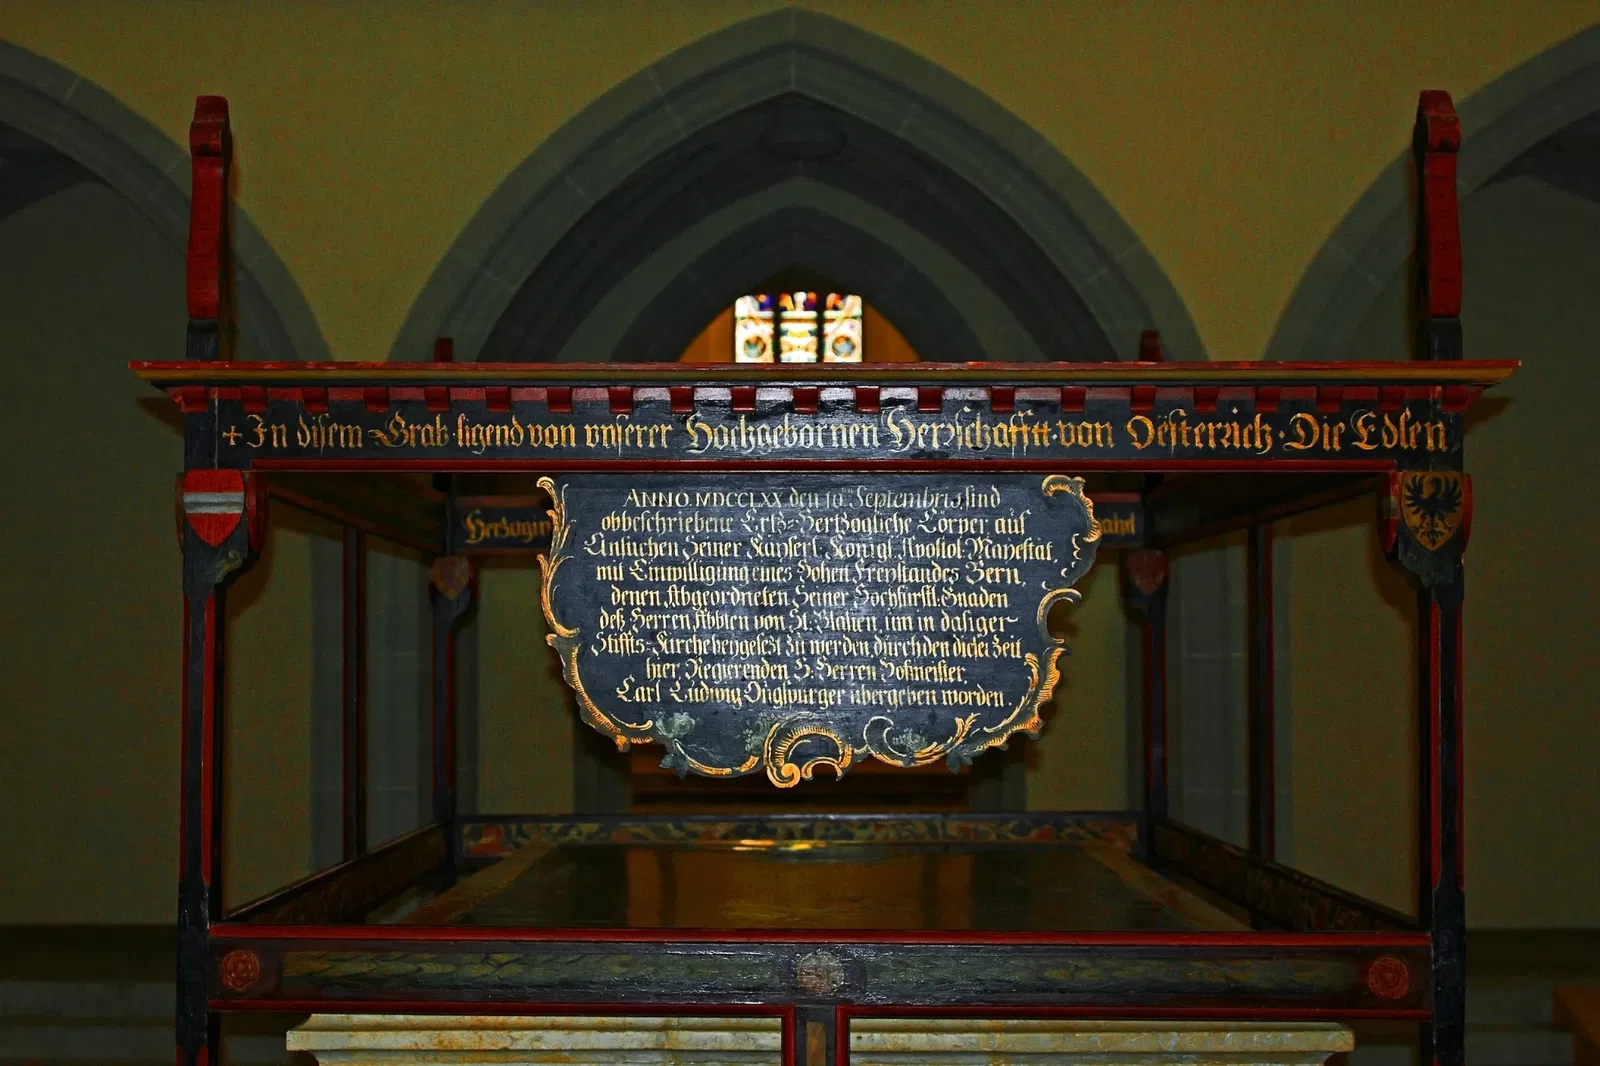 + In disem Grab ligend von vnserer Hochgebornen Herrschafft von Oesterrich · Die Edlen
Hertzogin
ANNO MDCCLXX den 10ten Septembris, sind
obbeschriebene Ertz=Hertzogliche Cörper auf
Ansuchen Seiner Kayserl. Königl. Apostol. Mayestät,
mit Einwilligung eines Hohen Freystandes Bern,
denen Abgeordneten Seiner Hochfürstl. Gnaden
deß Herren Abbten von St. Blasien, um in dasiger
Stiffts=Kirche beygesezt zu werden, durch den dieser Zeit
hier Regierenden H: Herren Hofmeister,
Carl Ludwig Ougspurger übergeben worden.